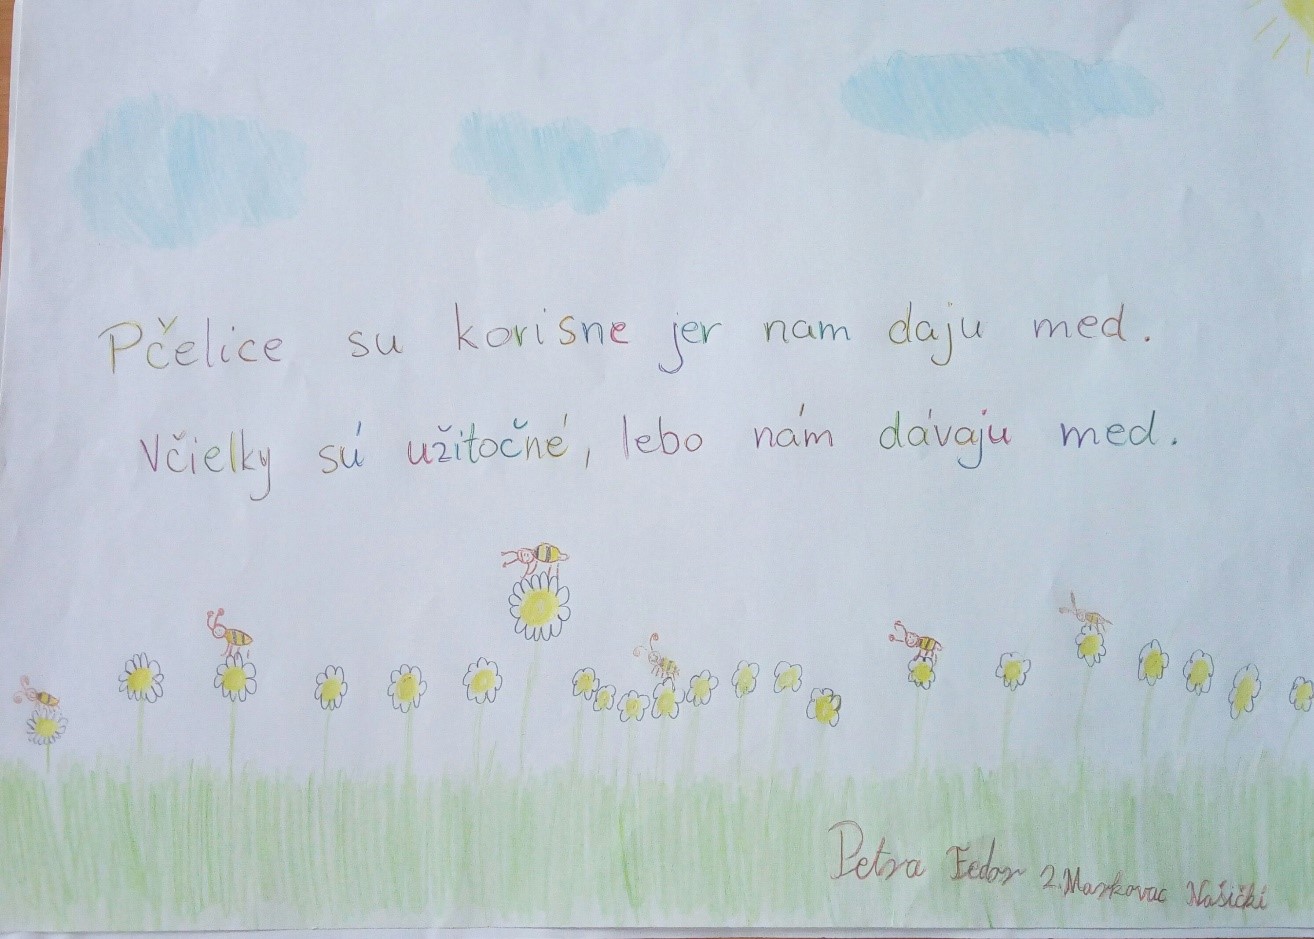 Pčelice su korisne jer nam daju med.
Včielky sú užitočné, lebo nám dávaju med.
Petra Fedor 2. Markovac Našički